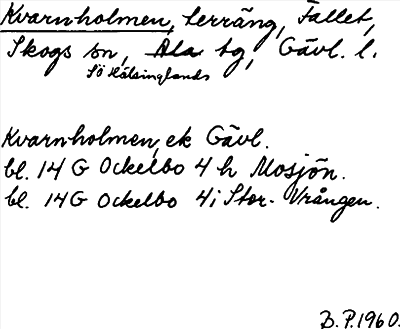 Kvarnholmen, terräng, Fallet,
Skogs sn, Ala tg, Gävl. l.
Sö Hälsinglands
Kvarnholmen, ek Gävl.
bl. 14 G Ockelbo 4 h Mosjön.
bl. 14 G Ockelbo 4i Stor-Vrången.
B.P. 1960.